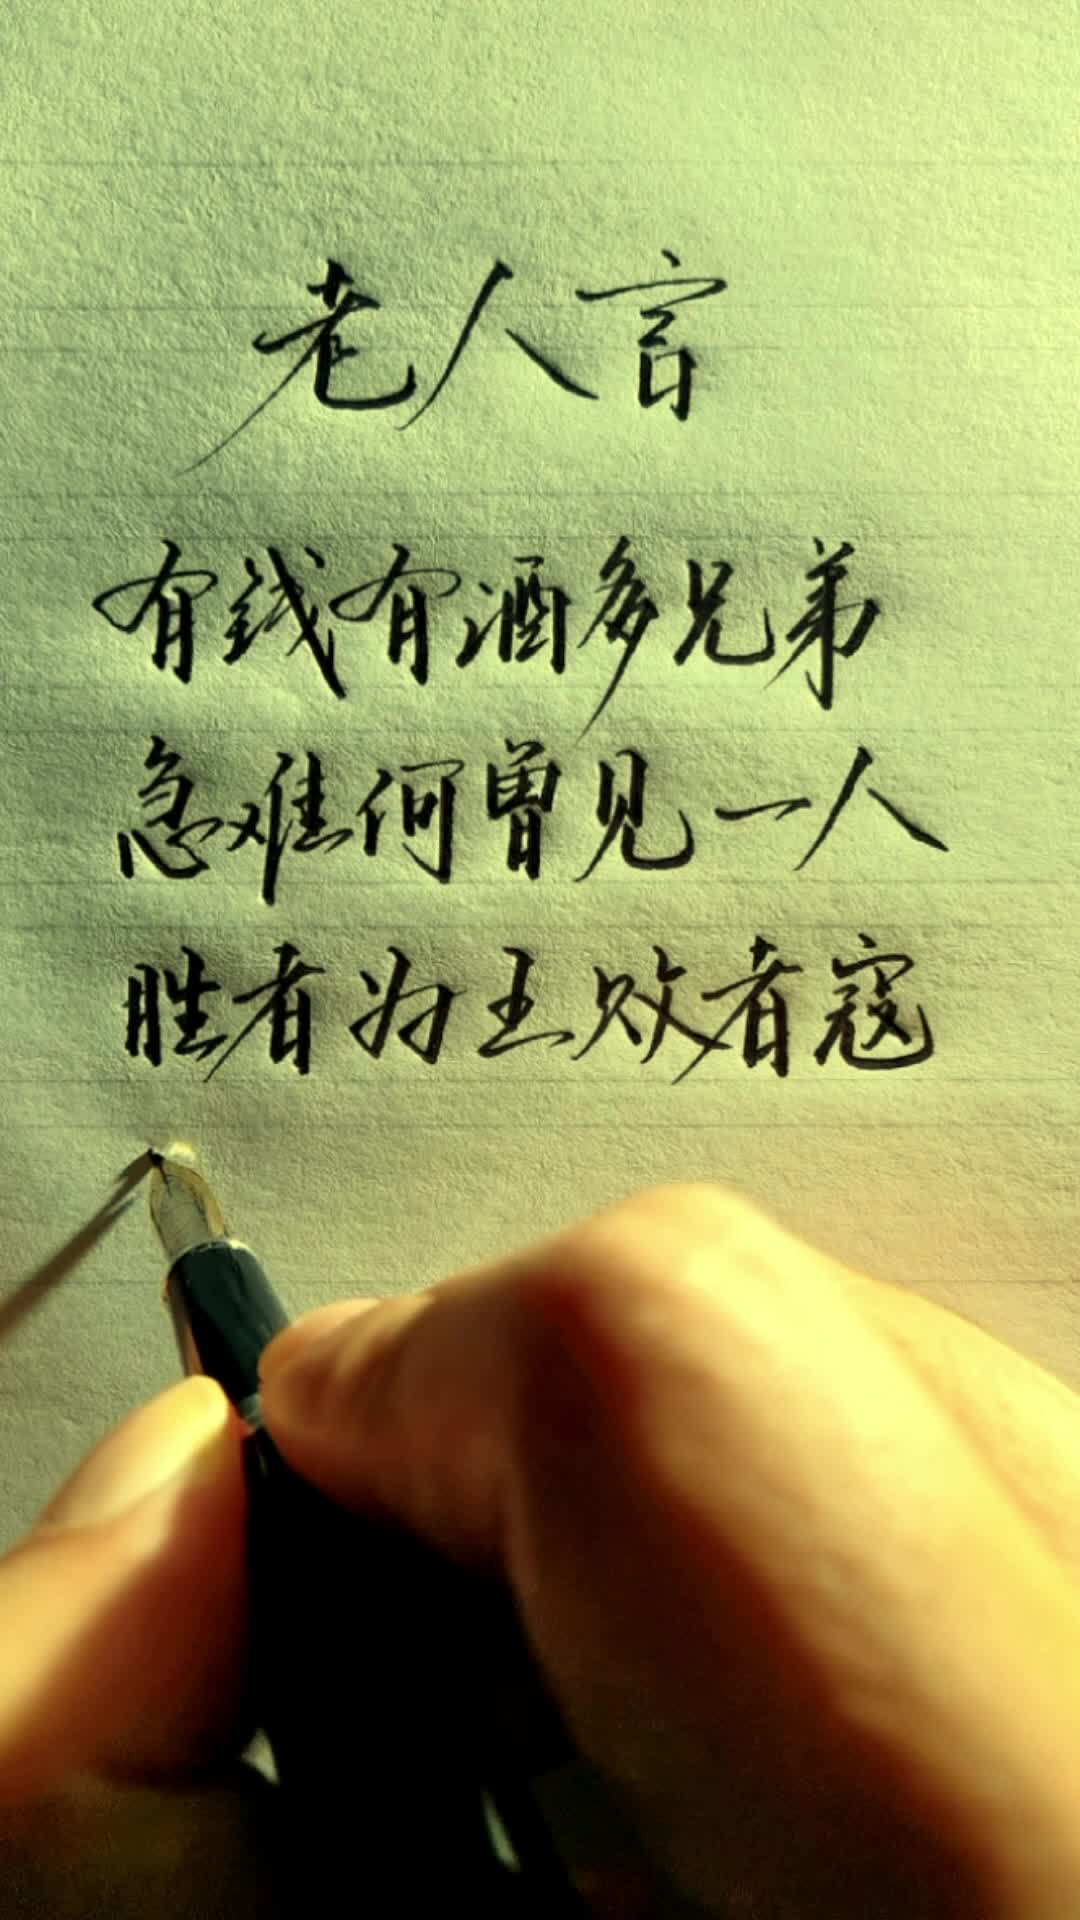 老人言
有钱有酒多兄弟
急难何曾见一人
胜者为王败者寇